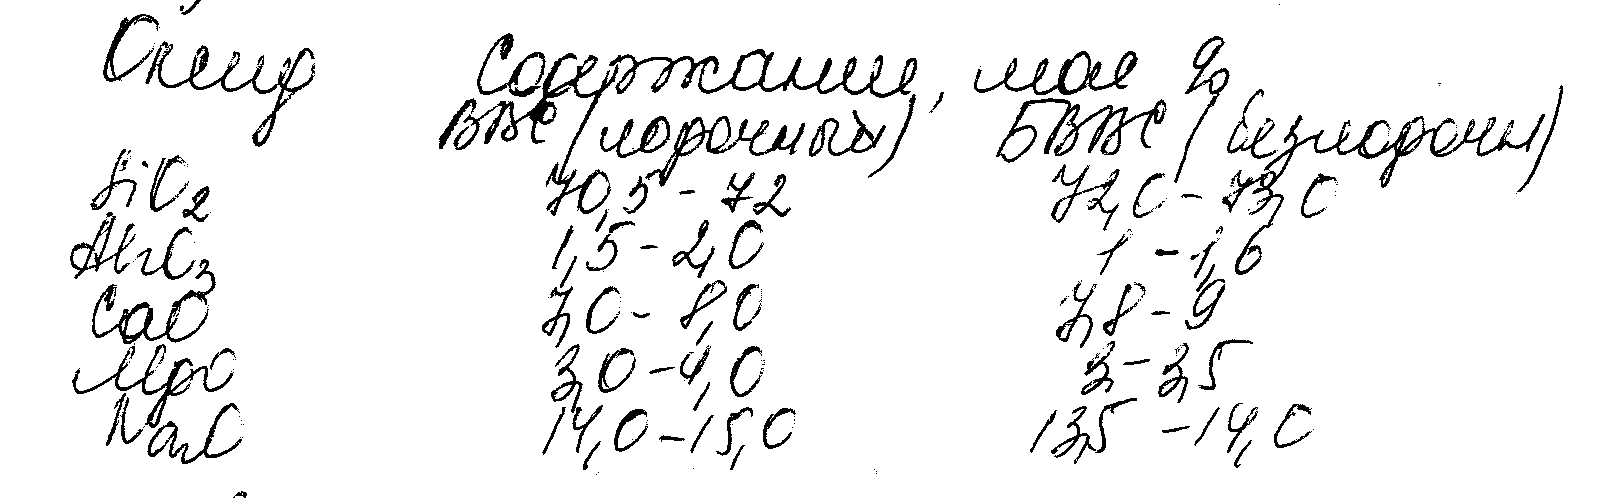 Оксид Содержание, мас %
ВВС (лодочный) БВВС (безлодочн)
SiO2 70,5 - 72 72,0 - 73,0
Al2O3 1,5 - 2,0 1 - 1,6
CaO 7,0 - 8,0 7,8 - 9
MgO 3,0 - 4,0 3 - 3,5
Na2O 14,0 - 15,0 13,5 - 14,0